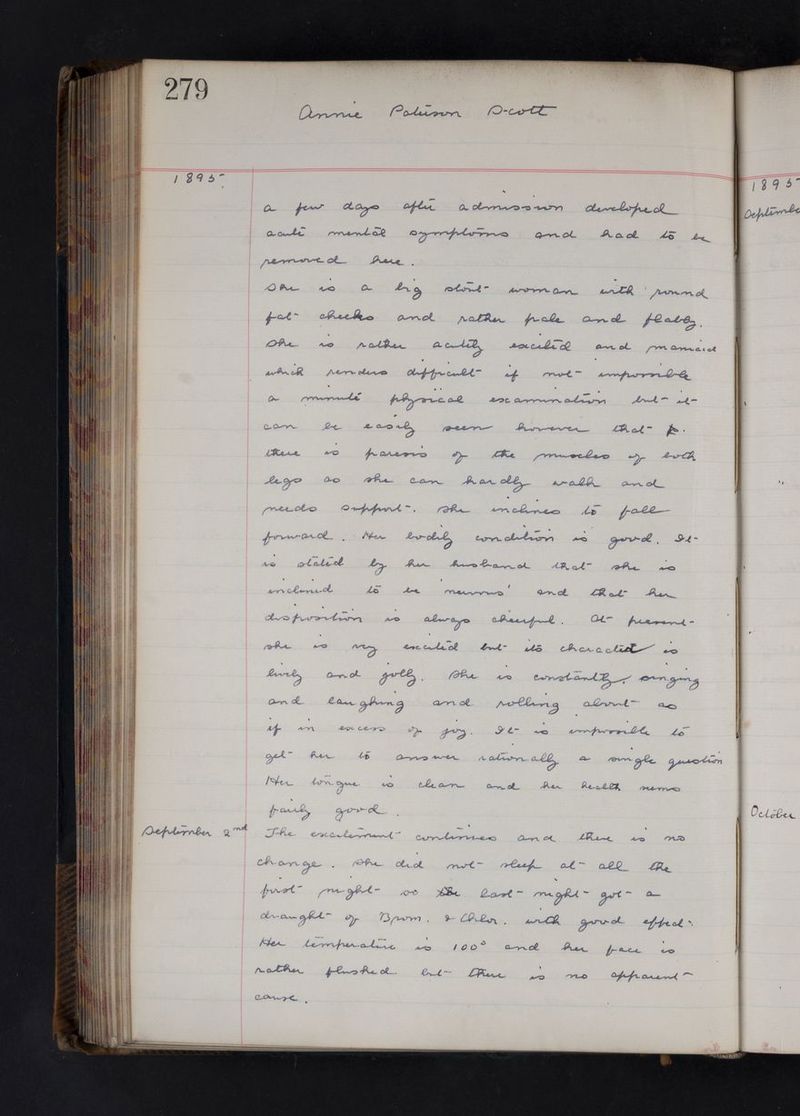 279
Annie Paterson Scott
1895
a few days after admission developed
acute mental symptoms and had to be
removed here.
She is a big stout woman with round
fat cheeks and rather pale and flabby.
She is rather acutely excited and maniacal
which renders difficult if not impossible
a minute physical examination but it
can be easily seen however that
there is paresis of the muscles of both
legs as she can hardly walk and
needs support. She inclines to fall
forward. Her bodily condition is good. It
is stated by her husband that she is
inclined to be 'nervous' and that her
disposition is always cheerful. At present
she is very excited but its character is
lively and jolly. She is constantly singing
and laughing and rolling about as
if in excess of joy. It is impossible to
get her to answer rationally a single question
Her tongue is clean and her health seems
fairly good.
September 2nd The excitement continues and there is no
change. She did not sleep at all the
first night so last night got a
draught of Brom. & Chlor. with good effect.
Her temperature is 100° and her face is
rather flushed but there is no apparent
cause.
1895
Septembe
October